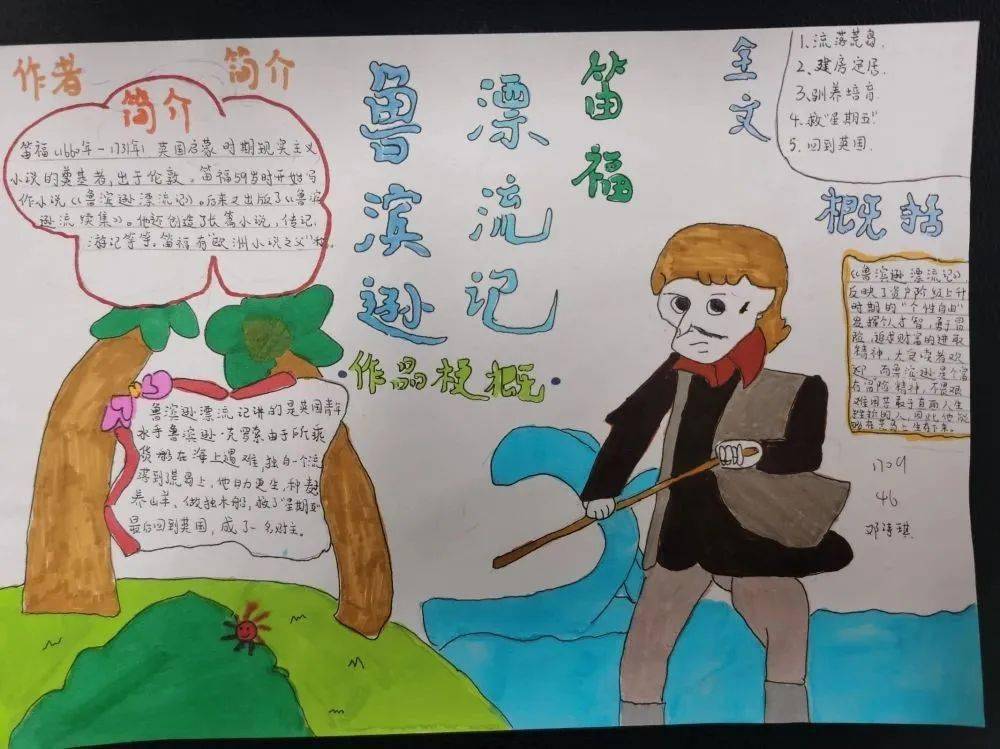 作者 简介
简介
笛福(1660年-1731年)英国启蒙时期现实主义
小说的奠基者,出于伦敦。笛福59岁时开始写
作小说《鲁滨逊漂流记》。后来又出版了《鲁滨
逊流续集》。他还创造了长篇小说,传记,
游记等等。笛福有"欧洲小说之父"
鲁滨逊
漂流记
笛福
·作品梗概·
鲁滨逊漂流记讲的是英国青年
水手鲁滨逊·克罗索由于所乘
货船在海上遇难,独自一个流
落到荒岛上,他自力更生,种麦
养山羊、做独木船,救了"星期五"
最后回到英国,成了一名财主。
全文
1.流落荒岛.
2.建房定居.
3.驯养培育.
4.救"星期五"
5.回到英国.
概括
《鲁滨逊漂流记》
反映了资产阶级上升
时期的"个性自由"
发挥个人才智,勇于冒
险,追求财富的进取
精神,大受读者欢
迎,而鲁滨逊是个富
有冒险精神,不畏艰
难困苦敢于直面人生
的人,因此他能
够在荒岛上生存下来。
1709
46
邓诗琪